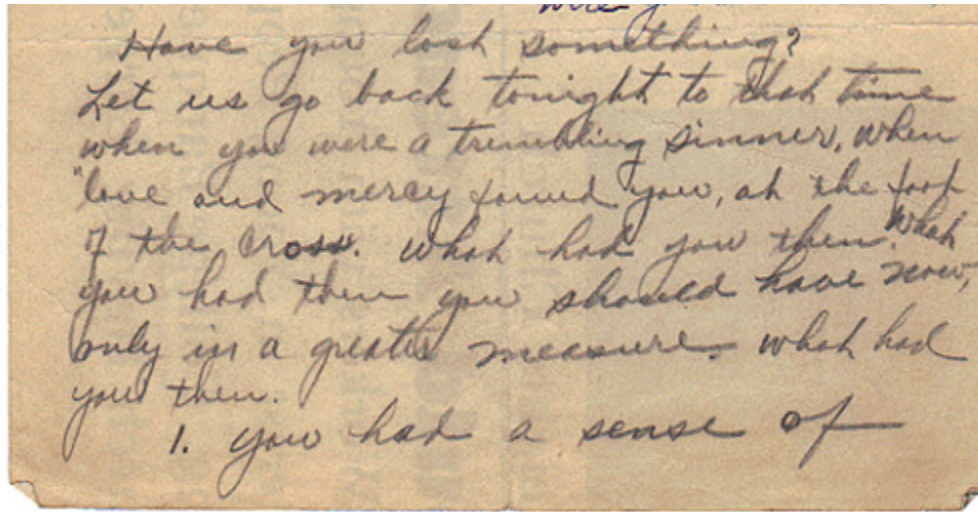 Have you lost something?
Let us go back tonight to that time
when you were a trembling sinner, when
"love and mercy found you, at the foot
of the cross. What had you then. What
you had then you should have now,
only in a greater measure. What had
you then.
1. you had a sense of